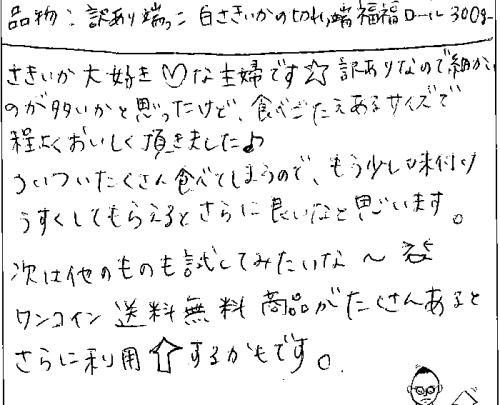 品物: 訳あり端っこ 白さきいかの切れ端 福福ロール 300g
さきいか大好き♡な主婦です☆ 訳ありなので細かい
のが多いかと思ったけど、食べごたえあるサイズで
程よくおいしく頂きました♪
ついついたくさん食べてしまうので、もう少し味付け
うすくしてもらえるとさらに良いなと思います。
次は他のものも試してみたいな〜
ワンコイン 送料無料 商品がたくさんあると
さらに利用⇧するかもです。